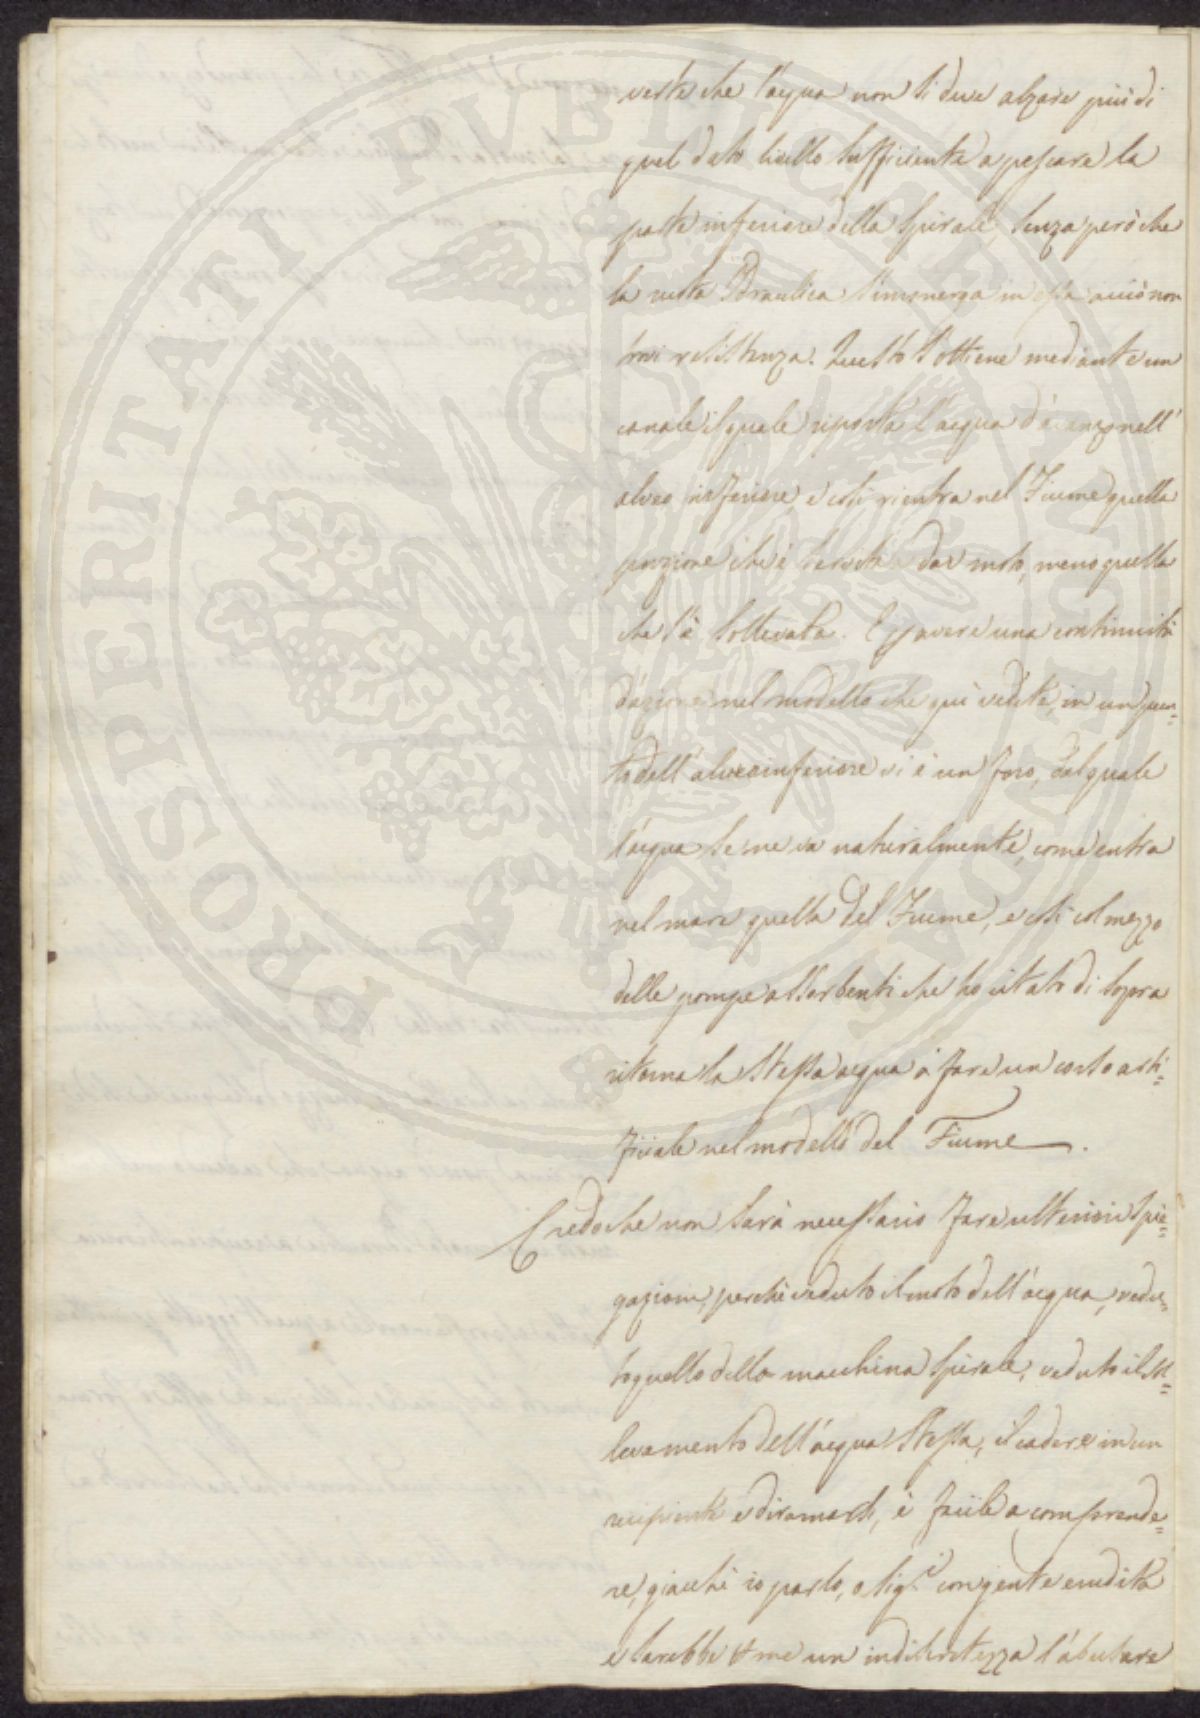 verte che l'acqua non si deve alzare più di
quel dato livello sufficiente a pescare la
parte inferiore della spirale, senza però che
la ruota Idraulica s'immerga in essa acciò non
trovi resistenza. Questo s'ottiene mediante un
canale il quale riporta l'acqua d'avanzo nell'
alveo inferiore, e così rientra nel Fiume quella
porzione che è servita a dar moto, meno quella
che s'è sollevata. Per avere una continuità
d'azione nel modello che qui vedete, in un pun=
to dell'alveo inferiore vi è un foro, dal quale
l'acqua se ne va naturalmente, come entra
nel mare quella del Fiume, e così col mezzo
delle pompe assorbenti che ho citato di sopra
ritorna la stessa acqua à fare un corso arti=
ficiale nel modello del Fiume.
Credo che non sarà necessario fare ulteriori spie=
gazioni, perchè veduto il moto dell'acqua, vedu=
to quello della macchina spirale, veduto il sol=
levamento dell'acqua stessa, il cadere in un
recipiente e diramarsi, è facile a comprende=
re, giacchè io parlo, o Sig.i con gente erudita
e sarebbe per me un indiscretezza l'abusare
PROSPERITATI PVBLICAE AVGENDAE